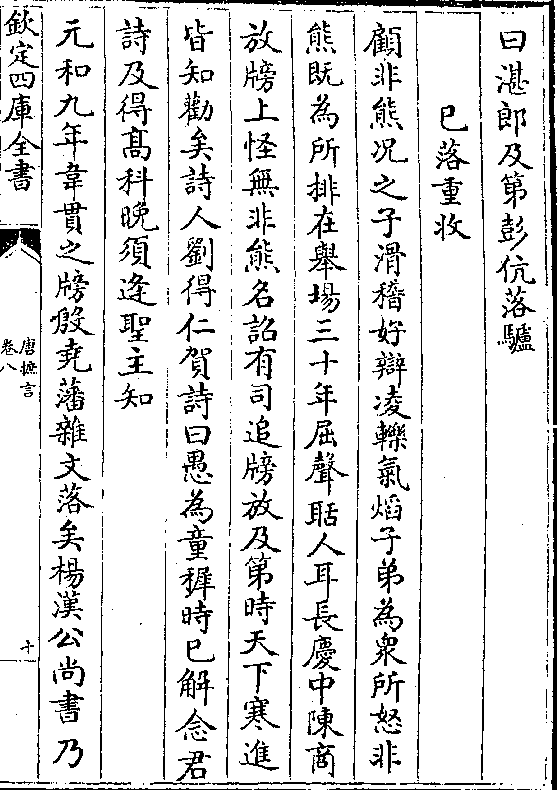 曰湛郎及第彭伉落驢
已落重收
顧非熊况之子滑稽好辯凌轢氣熖子弟為衆所怒非
熊既為所排在舉場三十年屈聲聒人耳長慶中陳商
放牓上怪無非熊名詔有司追牓放及第時天下寒進
皆知勸矣詩人劉得仁賀詩曰愚為童稺時已解念君
詩及得髙科晚須逢聖主知
元和九年韋貫之牓殷堯藩雜文落矣楊漢公尚書乃
欽定四庫全書
唐摭言
卷八
十